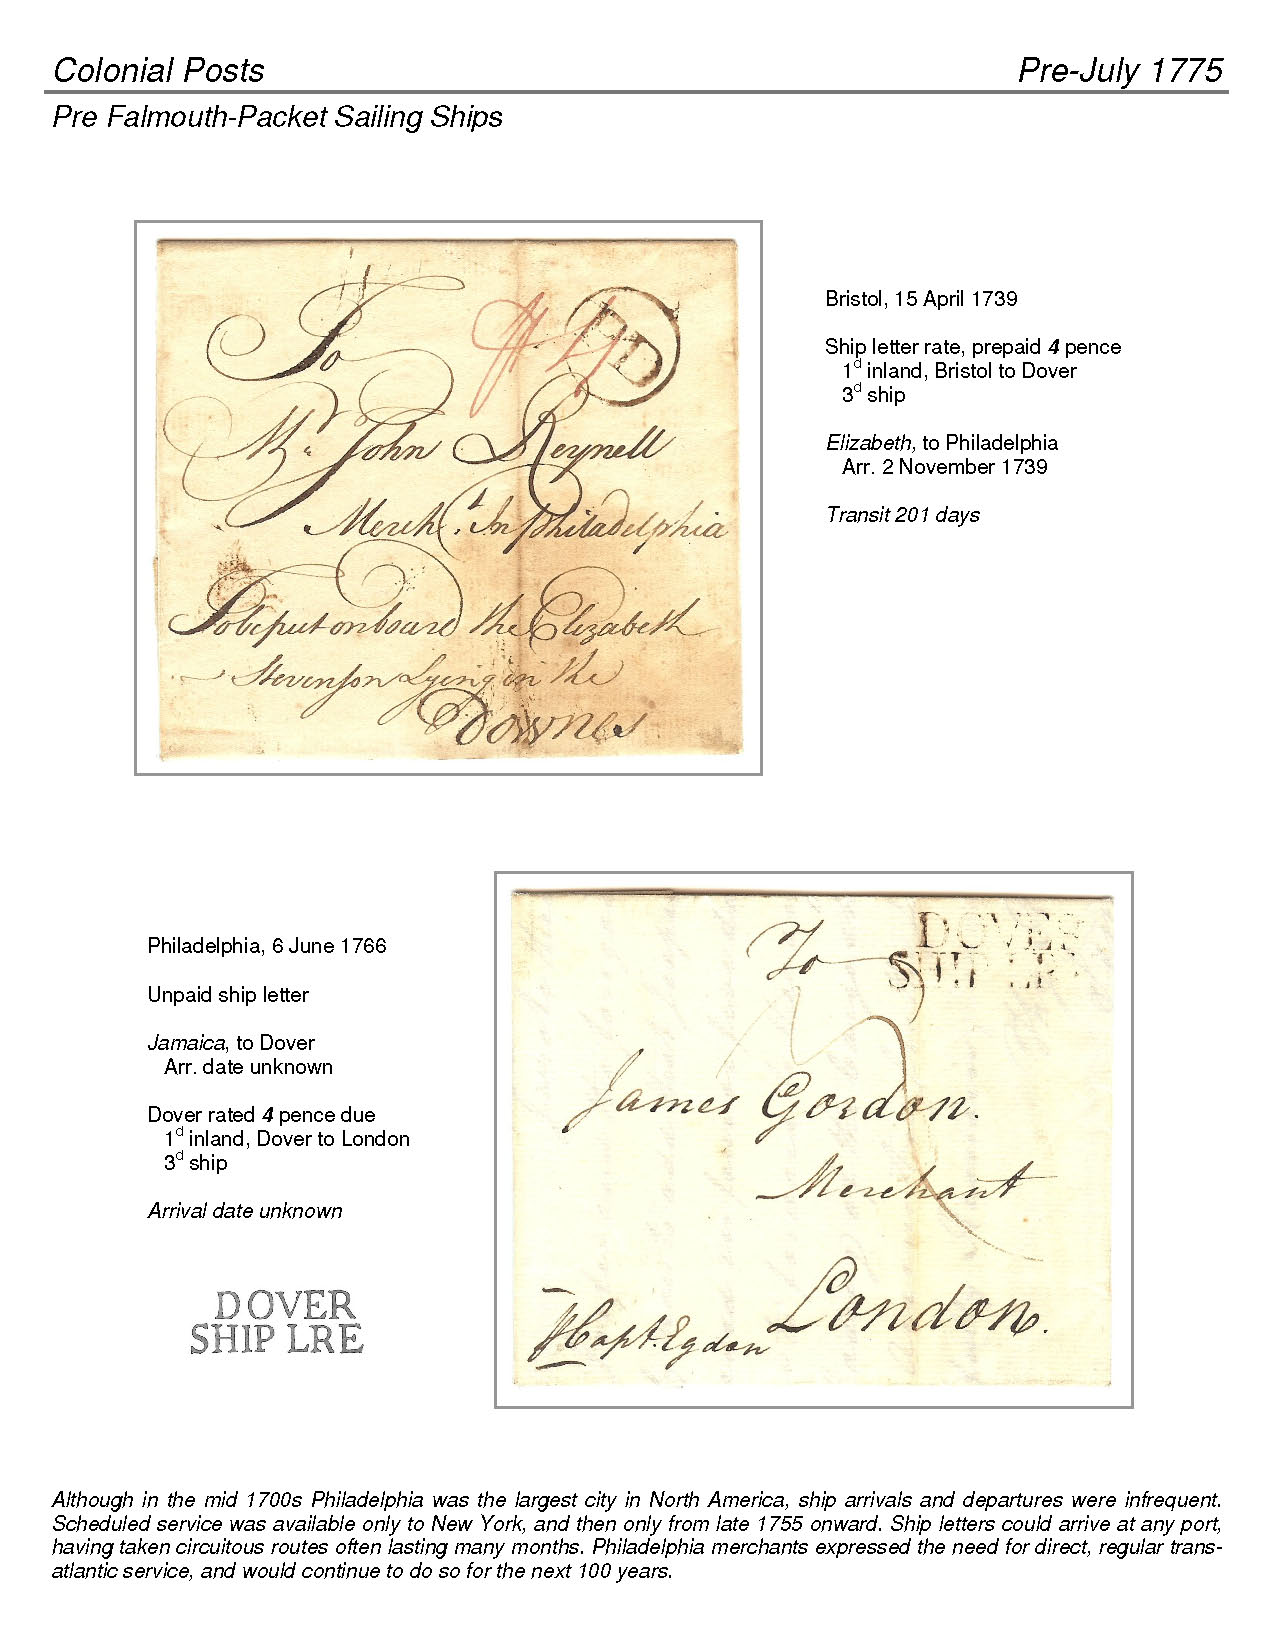 Colonial Posts Pre-July 1775
Pre Falmouth-Packet Sailing Ships
To
PD
Mr. John Reynell
Mercht. In Philadelphia
To be put on board the Elizabeth
Stevenson Lyeing in the
Downes
Bristol, 15 April 1739
Ship letter rate, prepaid 4 pence
1d inland, Bristol to Dover
3d ship
Elizabeth, to Philadelphia
Arr. 2 November 1739
Transit 201 days
Philadelphia, 6 June 1766
Unpaid ship letter
Jamaica, to Dover
Arr. date unknown
Dover rated 4 pence due
1d inland, Dover to London
3d ship
Arrival date unknown
DOVER
SHIP LRE
To
DOVER
SHIP LRE
James Gordon.
Merchant
London.
Capt. Egdon
Although in the mid 1700s Philadelphia was the largest city in North America, ship arrivals and departures were infrequent.
Scheduled service was available only to New York, and then only from late 1755 onward. Ship letters could arrive at any port,
having taken circuitous routes often lasting many months. Philadelphia merchants expressed the need for direct, regular trans-
atlantic service, and would continue to do so for the next 100 years.